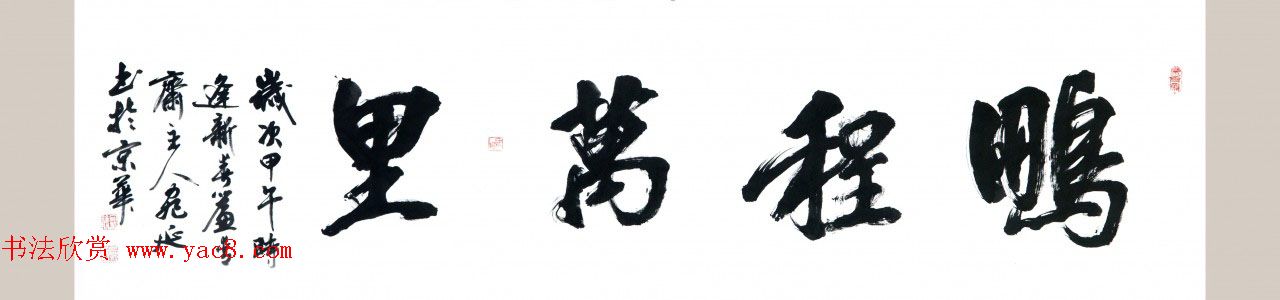 鵬程萬里
歲次甲午時
逢新春
齋主人
書於京華
书法欣赏 www.yac8.com